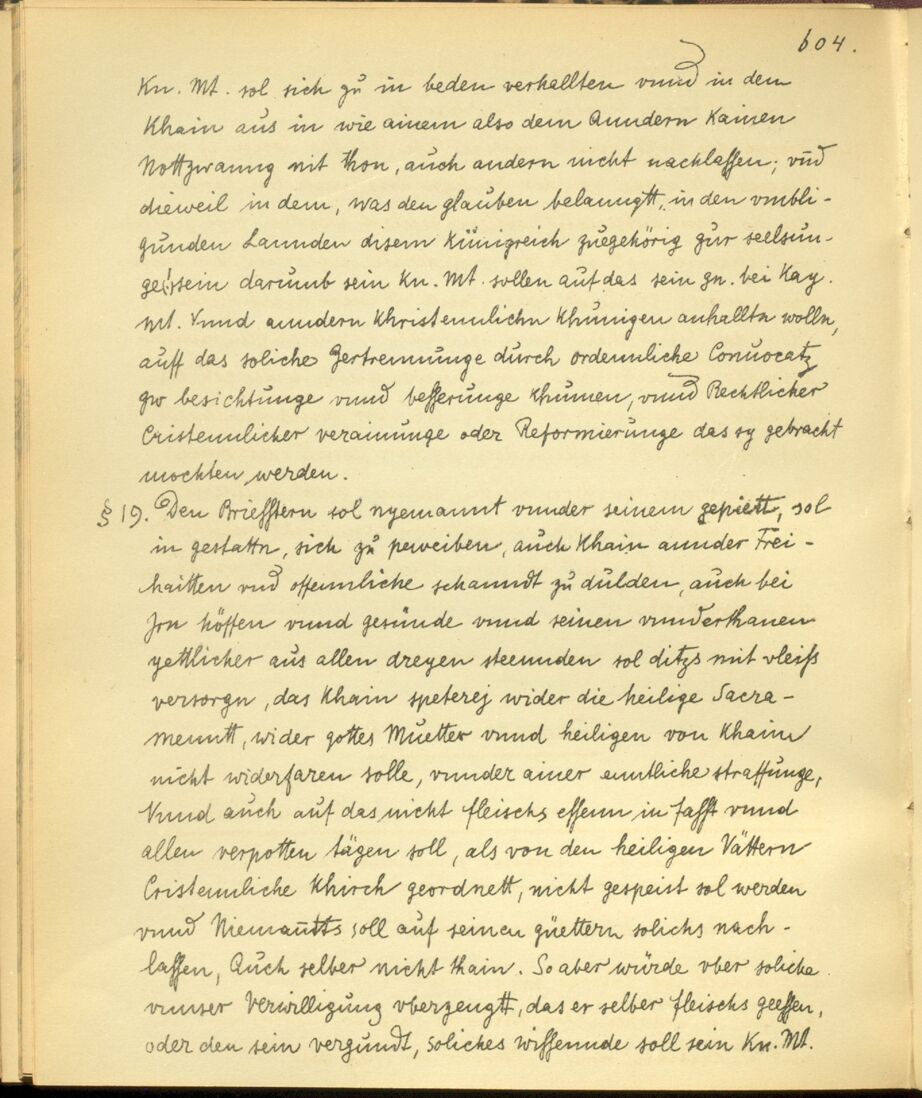 604.
Kn. Mt. sol sich zu in beden verhallten vnnd in dem
Khain aus in wie ainem also dem Anndern Kainen
Nottzwanng nit thon, auch andern nicht nachlassen; vnd
dieweil in dem, was den glauben belanngtt, in den vmbli-
gunden Lannden disem Künigreich zuegehörig zur seelsun-
ge(!)sein darumb sein Kn. Mt. sollen auf das sein gn. bei Kay.
Mt. Vnnd anndern Khristennlichn Khünigen anhalltn wolln,
auff das soliche Zertrennunge durch ordennliche Conuocatz
zw besichtunge vnnd besserunge Khumen, vnnd Rechtlicher
Cristennlicher verainunge oder Reformierunge das sy gebracht
mochten werden.
§ 19. Den Briefstern sol nyemannt vnnder seinem gepiett, sol
in gestattn, sich zu peweiben, auch Khain annder Frei-
haitten vnd offennliche schanndt zu dulden, auch bei
Jrn höffen vnnd gesünde vnnd seinen vnnderthanen
yettlicher aus allen dreyen steennden sol ditzs mit vleiss
versorgn, das Khain speterej wider die heilige Sacra-
menntt, wider gottes Muetter vnnd heiligen von Khaim
nicht widerfaren solle, vnnder ainer enntliche straffunge,
Vnnd auch auf das nicht fleischs essenn in fasst vnnd
allen verpotten tägen soll, als von den heiligen Vättern
Cristennliche Khirch geordnett, nicht gespeist sol werden
vnnd Niemantts soll auf seinen güettern solichs nach-
lassen, Auch selber nicht thain. So aber würde vber soliche
vnnser Verwilligung vberzeugtt, das er selber fleischs geessen,
oder den sein vergundt, soliches wissennde soll sein Kn. Mt.